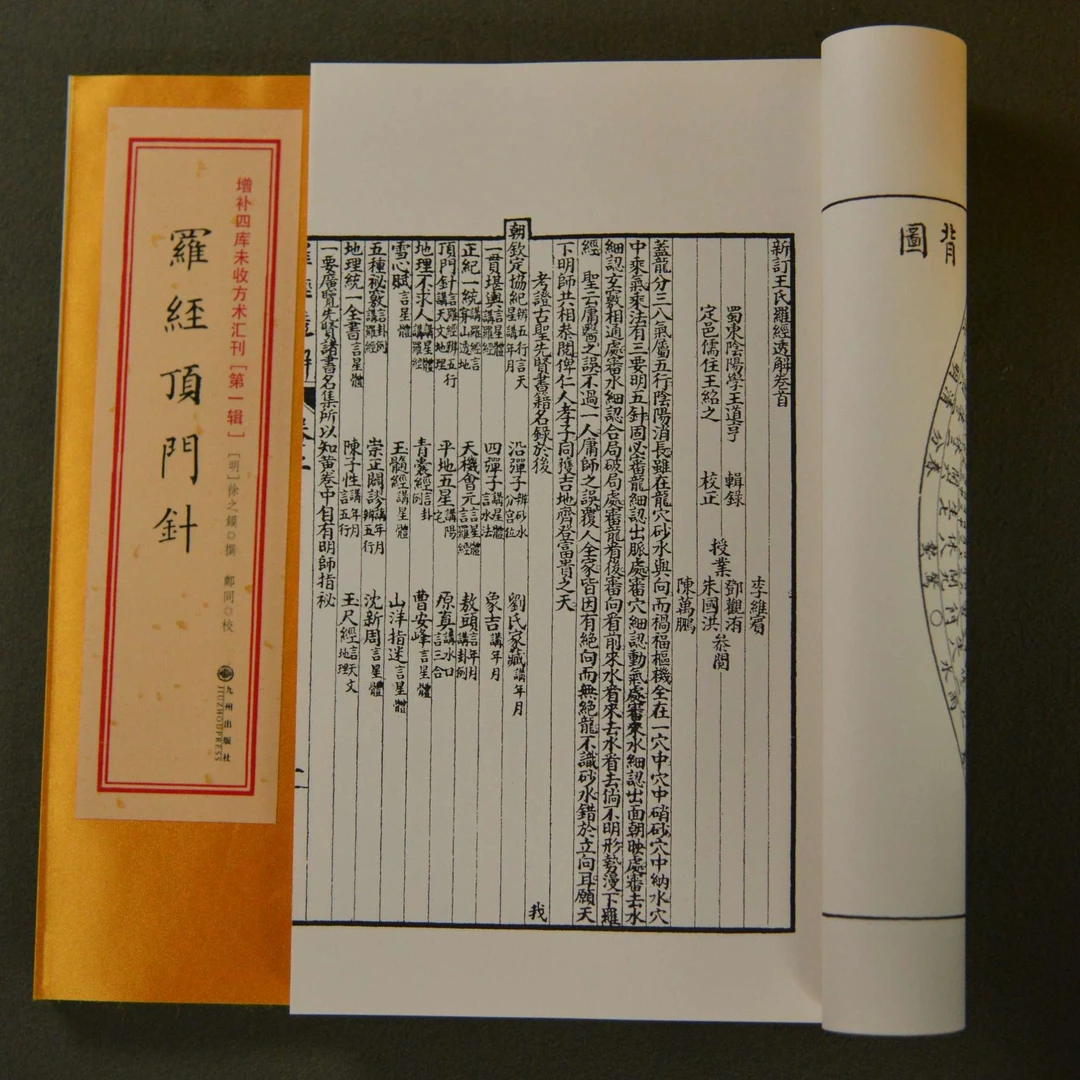 增补四库未收方术汇刊［第一辑］
羅經頂門針
［明］徐之鏌◎撰 鄭同◎校
九州出版社
JIUZHOUPRESS
背
圖
新訂王氏羅經透解卷首
蜀東陰陽學王道亨 輯錄
定邑儒住王紹之 校正
授業
李維賓
鄧觀洧
朱國洪
陳萬鵬
叅閱
蓋龍分三八氣屬五行陰陽消長雖在龍穴砂水與向而禍福樞機全在一穴中穴中硝砂穴中納水穴
中乘氣乘法有三要明五針固必審龍細認出脈處審穴細認動氣處審來水細認出面朝映處審去水
細認玄竅相通處審水細認合局破局處審龍看後審向看前來水看來去水看去倘不明形勢漫下羅
經 聖云庸醫之誤不過一人庸師之誤覆人全家皆因有絕向而無絕龍不識砂水錯於立向耳願天
下明師共相叅閱俾仁人孝子同獲吉地齊登富貴之天
考證古聖先賢書籍名錄於後 我
朝欽定協紀辨五行言天星講年月 沿彈子辨砂水分宮位 劉氏家藏講年月
一貫堪輿言星體講羅經 四彈子講星體言水法 象吉講年月
正紀一統講羅經言穿山透地 天機會元言星體言羅經 敖頭言年月講卦例
頂門針言羅經辨五行講天文地理 平地五星講陽宅 原真講水口言三合
地理不求人講星體講羅經 青囊經言卦例 曹安峰言星體
雪心賦言星體 玉髓經講星體 山洋指迷言星體
五種秘竅言卦例講羅經 崇正闢謬講年月辨五行 沈新周言星體
地理統一全書言星體 陳子性講年月言五行 玉尺經言天文地理
一要廣覽先賢諸書名集所以知黃卷中自有明師指秘